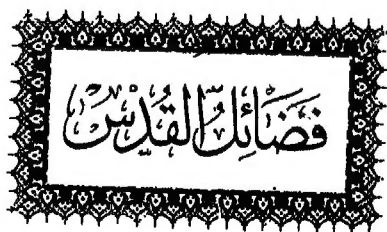 فَضَائِلُ القُدْسِ